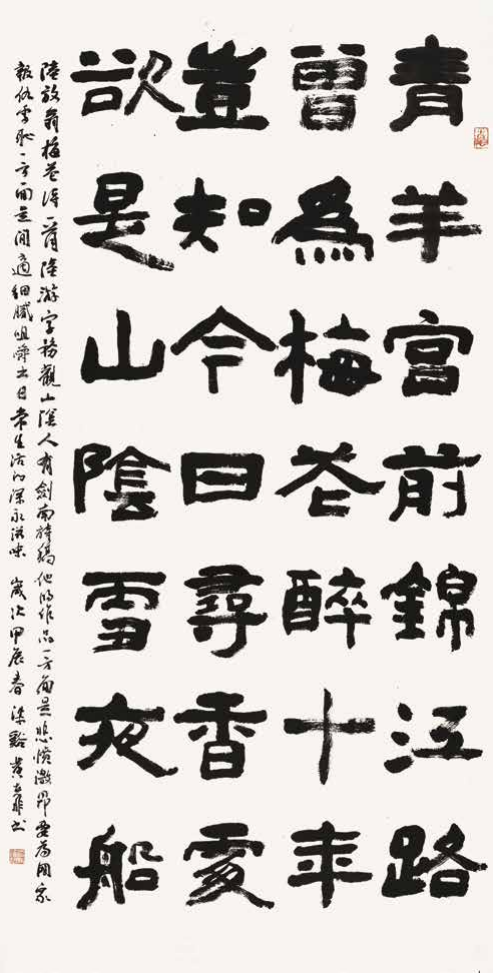 青羊宮前錦江路
曾為梅花醉十年
豈知今日尋香處
欲是山陰雪夜船
陸放翁梅花詩一首陸游字務觀山陰人有劍南詩稿他的作品一方面是悲憤激昂要為國家
報仇雪恥一方面是閒適細膩咀嚼出日常生活的深永滋味 歲次甲辰春梁谿黃書